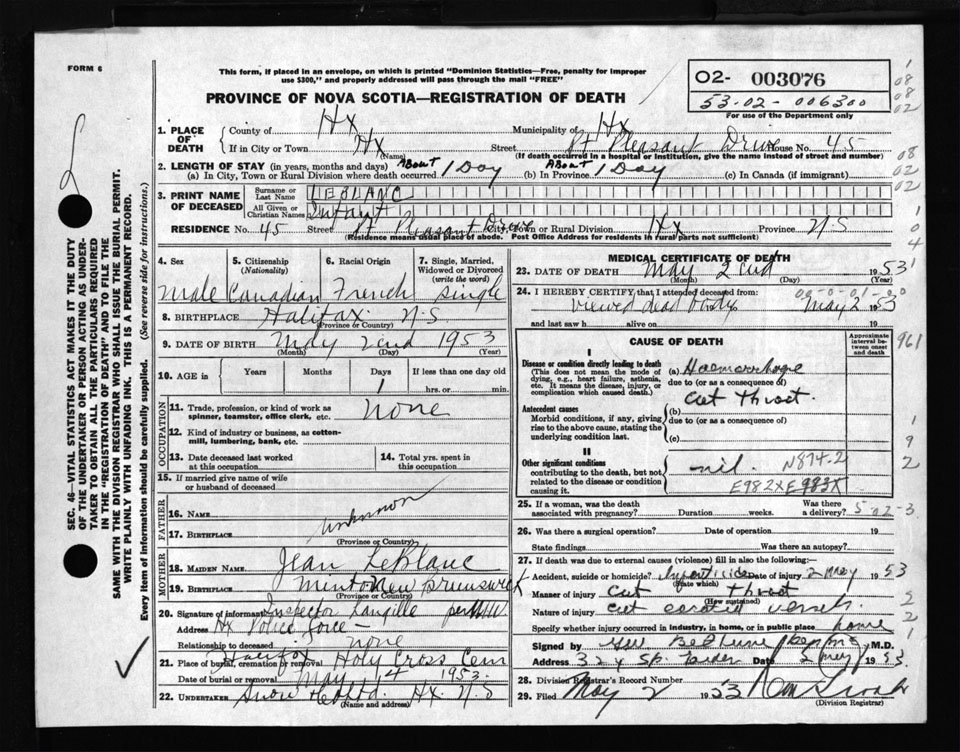 FORM 6
This form, if placed in an envelope, on which is printed "Dominion Statistics—Free, penalty for improper
use $300," and properly addressed will pass through the mail "FREE"
PROVINCE OF NOVA SCOTIA—REGISTRATION OF DEATH
02- 003076
53-02-006300
For use of the Department only
1. PLACE OF DEATH
County of Hx Municipality of Hx
If in City or Town Hx Street Pt Pleasant Drive House No. 45
(Name) (If death occurred in a hospital or institution, give the name instead of street and number)
2. LENGTH OF STAY (in years, months and days)
(a) In City, Town or Rural Division where death occurred About 1 Day (b) In Province About 1 Day (c) In Canada (if immigrant)
3. PRINT NAME OF DECEASED
Surname or Last Name LEBLANC
All Given or Christian Names Infant
RESIDENCE No. 45 Street Pt Pleasant Drive City, Town or Rural Division Hx Province N.S
(Residence means usual place of abode. Post Office Address for residents in rural parts not sufficient)
4. Sex
Male
5. Citizenship (Nationality)
Canadian
6. Racial Origin
French
7. Single, Married, Widowed or Divorced (write the word)
single
8. BIRTHPLACE Halifax N.S
(Province or Country)
9. DATE OF BIRTH May 2nd 1953
(Month) (Day) (Year)
10. AGE in Years Months Days If less than one day old
1 hrs. or min.
OCCUPATION
11. Trade, profession, or kind of work as spinner, teamster, office clerk, etc. none
12. Kind of industry or business, as cotton-mill, lumbering, bank, etc.
13. Date deceased last worked at this occupation
14. Total yrs. spent in this occupation
15. If married give name of wife or husband of deceased
FATHER
16. NAME
unknown
17. BIRTHPLACE
(Province or Country)
MOTHER
18. MAIDEN NAME Jean LeBlanc
19. BIRTHPLACE New Brunswick
(Province or Country)
20. Signature of informant Inspector Langille
Address Hx Police force
Relationship to deceased none
21. Place of burial, cremation or removal Halifax Holy Cross Cem
Date of burial or removal May 14 1953
22. UNDERTAKER Snow & Co Ltd. Hx. N.S
(Name and address)
MEDICAL CERTIFICATE OF DEATH
23. DATE OF DEATH May 2nd 1953
(Month) (Day) (Year)
24. I HEREBY CERTIFY that I attended deceased from:
viewed dead body May 2 1953
and last saw h alive on 19
CAUSE OF DEATH
Approximate interval between onset and death
I
Disease or condition directly leading to death
(This does not mean the mode of dying, e.g., heart failure, asthenia, etc. It means the disease, injury, or complication which caused death.)
(a) Haemorrhage
due to (or as a consequence of)
Cut Throat.
Antecedent causes
Morbid conditions, if any, giving rise to the above cause, stating the underlying condition last.
(b)
due to (or as a consequence of)
(c)
II
Other significant conditions
contributing to the death, but not related to the disease or condition causing it.
nil. N874.2
E982X E983X
25. If a woman, was the death associated with pregnancy? Duration weeks. Was there a delivery?
26. Was there a surgical operation? Date of operation 19
State findings Was there an autopsy?
27. If death was due to external causes (violence) fill in also the following:—
Accident, suicide or homicide? Infanticide Date of injury 2 May 1953
(State which)
Manner of injury Cut Throat
(How sustained)
Nature of injury cut carotid vessels.
Specify whether injury occurred in industry, in home, or in public place home
Signed by M.D.
Address Date 2 May 1953.
28. Division Registrar's Record Number
29. Filed May 2 1953
(Division Registrar)
SEC. 46—VITAL STATISTICS ACT MAKES IT THE DUTY
OF THE UNDERTAKER OR PERSON ACTING AS UNDER-
TAKER TO OBTAIN ALL THE PARTICULARS REQUIRED
IN THE "REGISTRATION OF DEATH" AND TO FILE THE
SAME WITH THE DIVISION REGISTRAR WHO SHALL ISSUE THE BURIAL PERMIT.
WRITE PLAINLY WITH UNFADING INK. THIS IS A PERMANENT RECORD.
Every item of information should be carefully supplied. (See reverse side for instructions.)